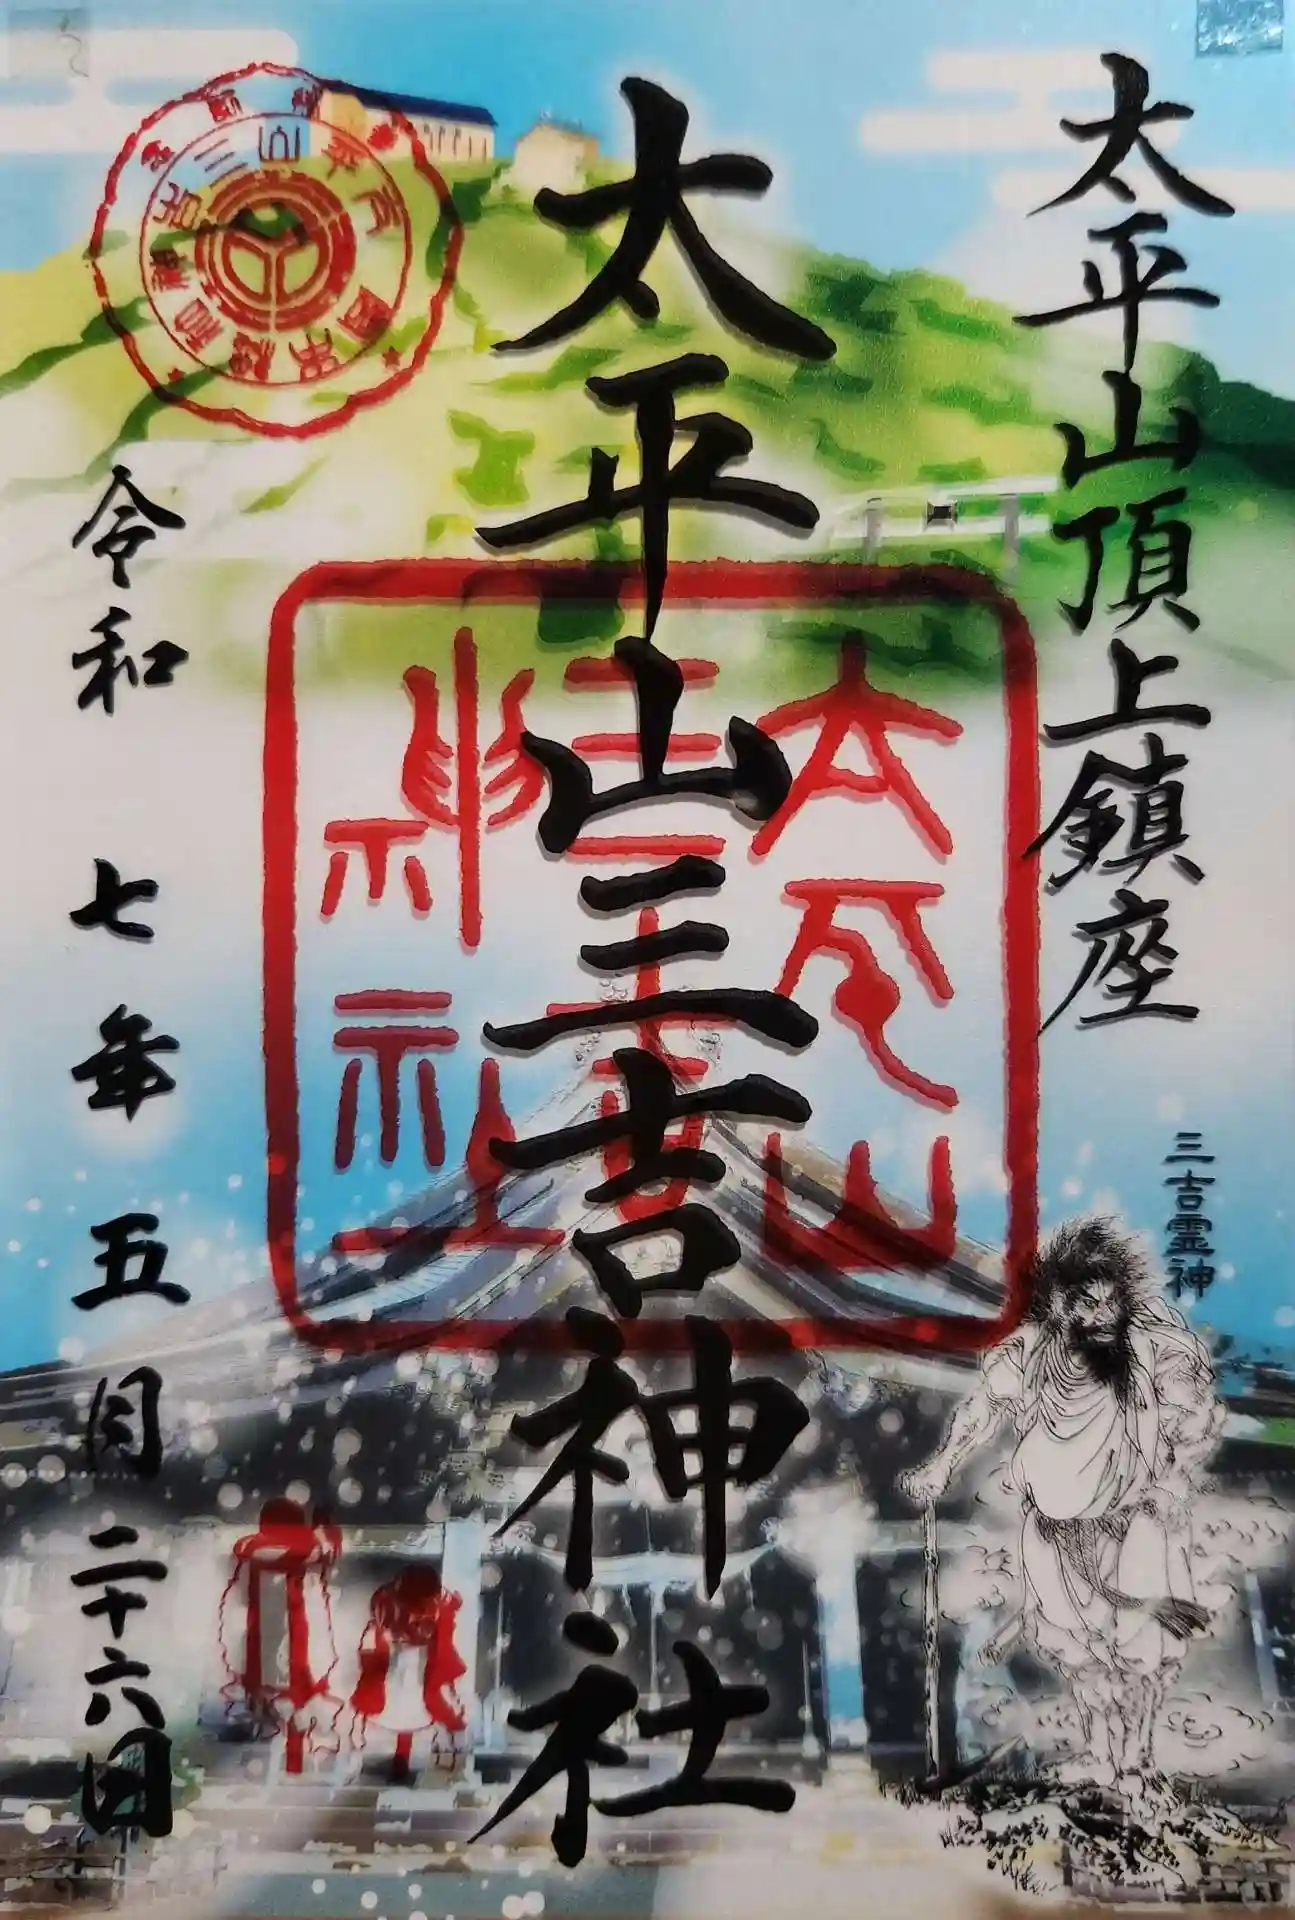 太平山頂上鎮座
三吉霊神
太平山三吉神社
太平山三吉神社
令和 七年 五月二十六日